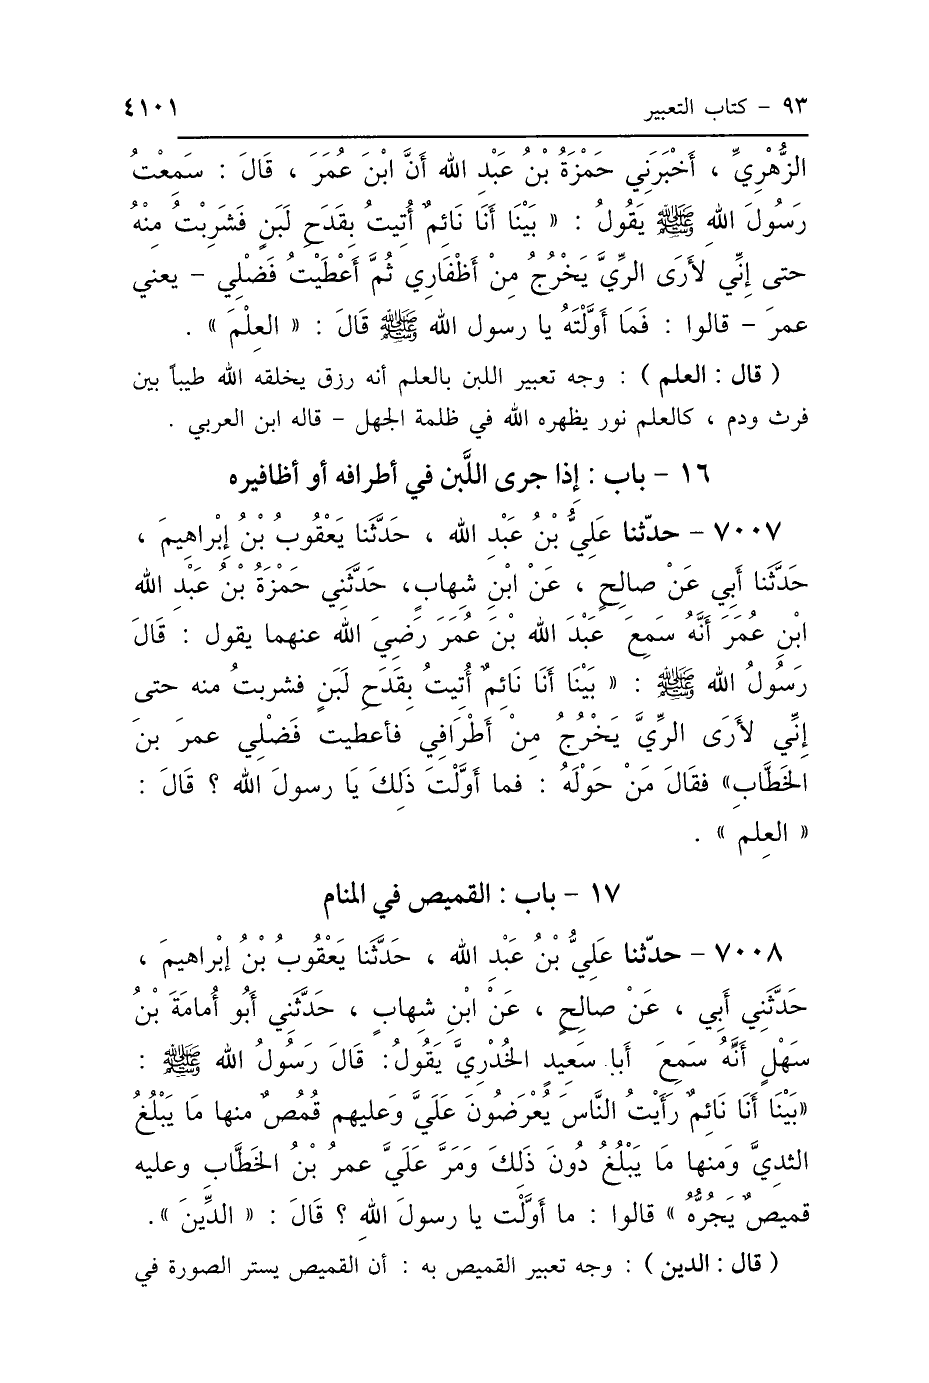 ٩٣ - كتاب التعبير ٤١٠١
الزُّهْرِيِّ ، أَخْبَرَنِي حَمْزَةُ بْنُ عَبْدِ الله أَنَّ ابْنَ عُمَرَ ، قَالَ : سَمِعْتُ
رَسُولَ اللهِ ﷺ يَقُولُ : « بَيْنَا أَنَا نَائِمٌ أُتِيتُ بِقَدَحِ لَبَنٍ فَشَرِبْتُ مِنْهُ
حتى إِنِّي لأَرَى الرِّيَّ يَخْرُجُ مِنْ أَظْفَارِي ثُمَّ أَعْطَيْتُ فَضْلِي - يعني
عمرَ - قالوا : فَمَا أَوَّلْتَهُ يا رسول الله ﷺ قَالَ : « العِلْمَ » .
( قال : العلم ) : وجه تعبير اللبن بالعلم أنه رزق يخلقه الله طيباً بين
فرث ودم ، كالعلم نور يظهره الله في ظلمة الجهل - قاله ابن العربي .
١٦ - باب : إذا جرى اللَّبن في أطرافه أو أظافيره
٧٠٠٧ - حدّثنا عَلِيُّ بْنُ عَبْدِ الله ، حَدَّثَنا يَعْقُوبُ بْنُ إِبْراهِيمَ ،
حَدَّثَنا أَبِي عَنْ صالِحٍ ، عَنْ ابْنِ شِهابٍ، حَدَّثَنِي حَمْزَةُ بْنُ عَبْدِ الله
ابْنِ عُمَرَ أَنَّهُ سَمِعَ عَبْدَ الله بْنَ عُمَرَ رَضِيَ الله عنهما يقول : قَالَ
رَسُولُ الله ﷺ : « بَيْنَا أَنَا نَائِمٌ أُتِيتُ بِقَدَحِ لَبَنٍ فشربتُ منه حتى
إِنِّي لأَرَى الرِّيَّ يَخْرُجُ مِنْ أَطْرَافِي فأعطيت فَضْلِي عمرَ بنَ
الخَطَّابِ» فقَالَ مَنْ حَوْلَهُ : فما أَوَّلْتَ ذَلِكَ يَا رسولَ الله ؟ قَالَ :
« العِلم » .
١٧ - باب : القميص في المنام
٧٠٠٨ - حدّثنا عَلِيُّ بْنُ عَبْدِ الله ، حَدَّثَنا يَعْقُوبُ بْنُ إِبْراهيمَ ،
حَدَّثَنِي أَبِي ، عَنْ صالِحٍ ، عَنْ ابْنِ شِهابٍ ، حَدَّثَنِي أَبُو أُمامَةَ بْنُ
سَهْلٍ أَنَّهُ سَمِعَ أبا سَعِيدٍ الخُدْرِيَّ يَقُولُ: قَالَ رَسُولُ الله ﷺ :
«بَيْنَا أَنا نَائِمٌ رَأَيْتُ النَّاسَ يُعْرَضُونَ عَلَيَّ وَعَليهم قُمُصٌ منها مَا يَبْلُغُ
الثديَّ وَمنها ما يَبْلُغُ دُونَ ذَلِكَ وَمَرَّ عَلَيَّ عمرُ بْنُ الخَطَّابِ وعليه
قميصٌ يَجُرُّهُ » قالوا : ما أَوَّلْت يا رسولَ اللهِ ؟ قَالَ : « الدِّينَ ».
( قال : الدين ) : وجه تعبير القميص به : أن القميص يستر الصورة في